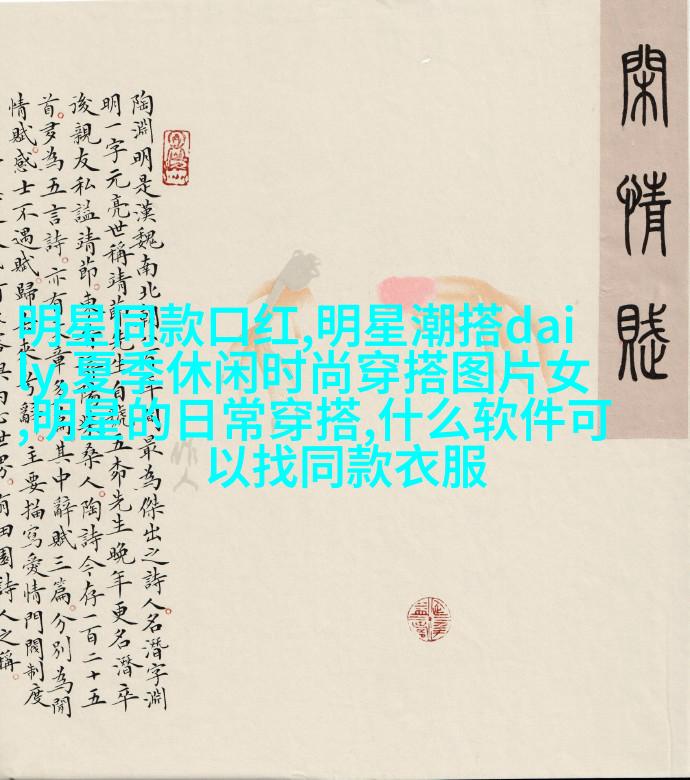 明星同款口红,明星潮搭dai
ly,夏季休闲时尚穿搭图片女
,明星的日常穿搭,什么软件可
以找同款衣服
閑情賦
陶淵明是漢魏南北朝年間最為傑出之詩人。名潛字淵
明一字元亮世稱靖節先生自號五柳先生晚年更名潛卒
後親友私謚靖節東陽柴桑人。陶詩今存一百二十五
首。多為五言詩。亦有文章多篇其中辭賦三篇。分別為閒
情賦。感士不遇賦歸去來兮辭。主要描寫愛情門閥制度
田園詩人之稱。